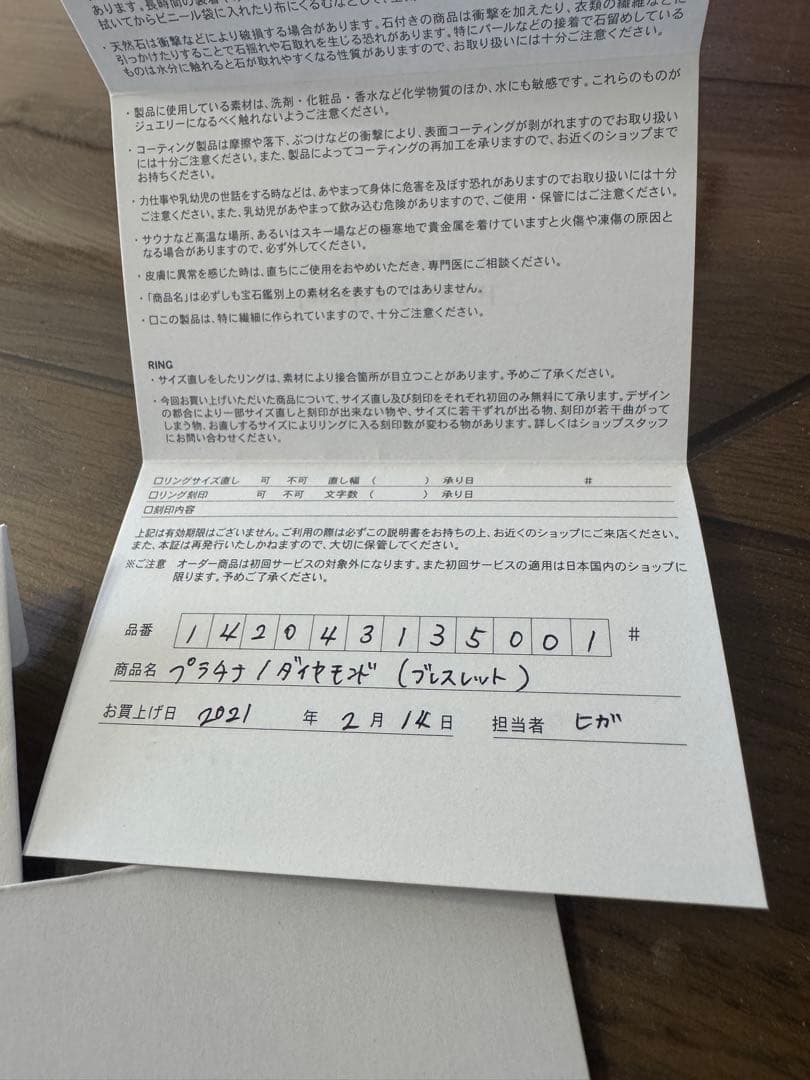 拭いてからビニール袋に入れたり布にくるむなどして、
・天然石は衝撃などにより破損する場合があります。石付きの商品は衝撃を加えたり、衣類の繊維などに
引っかけたりすることで石揺れや石取れを生じる恐れがあります。特にパールなどの接着で石留めしている
ものは水分に触れると石が取れやすくなる性質がありますので、お取り扱いには十分ご注意ください。
・製品に使用している素材は、洗剤・化粧品・香水など化学物質のほか、水にも敏感です。これらのものが
ジュエリーになるべく触れないようご注意ください。
・コーティング製品は摩擦や落下、ぶつけなどの衝撃により、表面コーティングが剥がれますのでお取り扱い
には十分ご注意ください。また、製品によってコーティングの再加工を承りますので、お近くのショップまで
お持ちください。
・力仕事や乳幼児の世話をする時などは、あやまって身体に危害を及ぼす恐れがありますのでお取り扱いには十分
ご注意ください。また、乳幼児があやまって飲み込む危険がありますので、ご使用・保管にはご注意ください。
・サウナなど高温な場所、あるいはスキー場などの極寒地で貴金属を着けていますと火傷や凍傷の原因と
なる場合がありますので、必ず外してください。
・皮膚に異常を感じた時は、直ちにご使用をおやめいただき、専門医にご相談ください。
・「商品名」は必ずしも宝石鑑別上の素材名を表すものではありません。
・□この製品は、特に繊細に作られていますので、十分ご注意ください。
RING
・サイズ直しをしたリングは、素材により接合箇所が目立つことがあります。予めご了承ください。
・今回お買い上げいただいた商品について、サイズ直し及び刻印をそれぞれ初回のみ無料にて承ります。デザイン
の都合により一部サイズ直しと刻印が出来ない物や、サイズに若干ずれが出る物、刻印が若干曲がって
しまう物、お直しするサイズによりリングに入る刻印数が変わる物があります。詳しくはショップスタッフ
にお問い合わせください。
□リングサイズ直し 可 不可 直し幅 ( ) 承り日 #
□リング刻印 可 不可 文字数 ( ) 承り日
□刻印内容
上記は有効期限はございません。ご利用の際は必ずこの説明書をお持ちの上、お近くのショップにご来店ください。
また、本証は再発行いたしかねますので、大切に保管してください。
※ご注意 オーダー商品は初回サービスの対象外になります。また初回サービスの適用は日本国内のショップに
限ります。予めご了承ください。
品番 1 4 2 0 4 3 1 3 5 0 0 1 #
商品名 プラチナ/ダイヤモンド(ブレスレット)
お買上げ日 2021 年 2 月 14 日 担当者 ヒガ